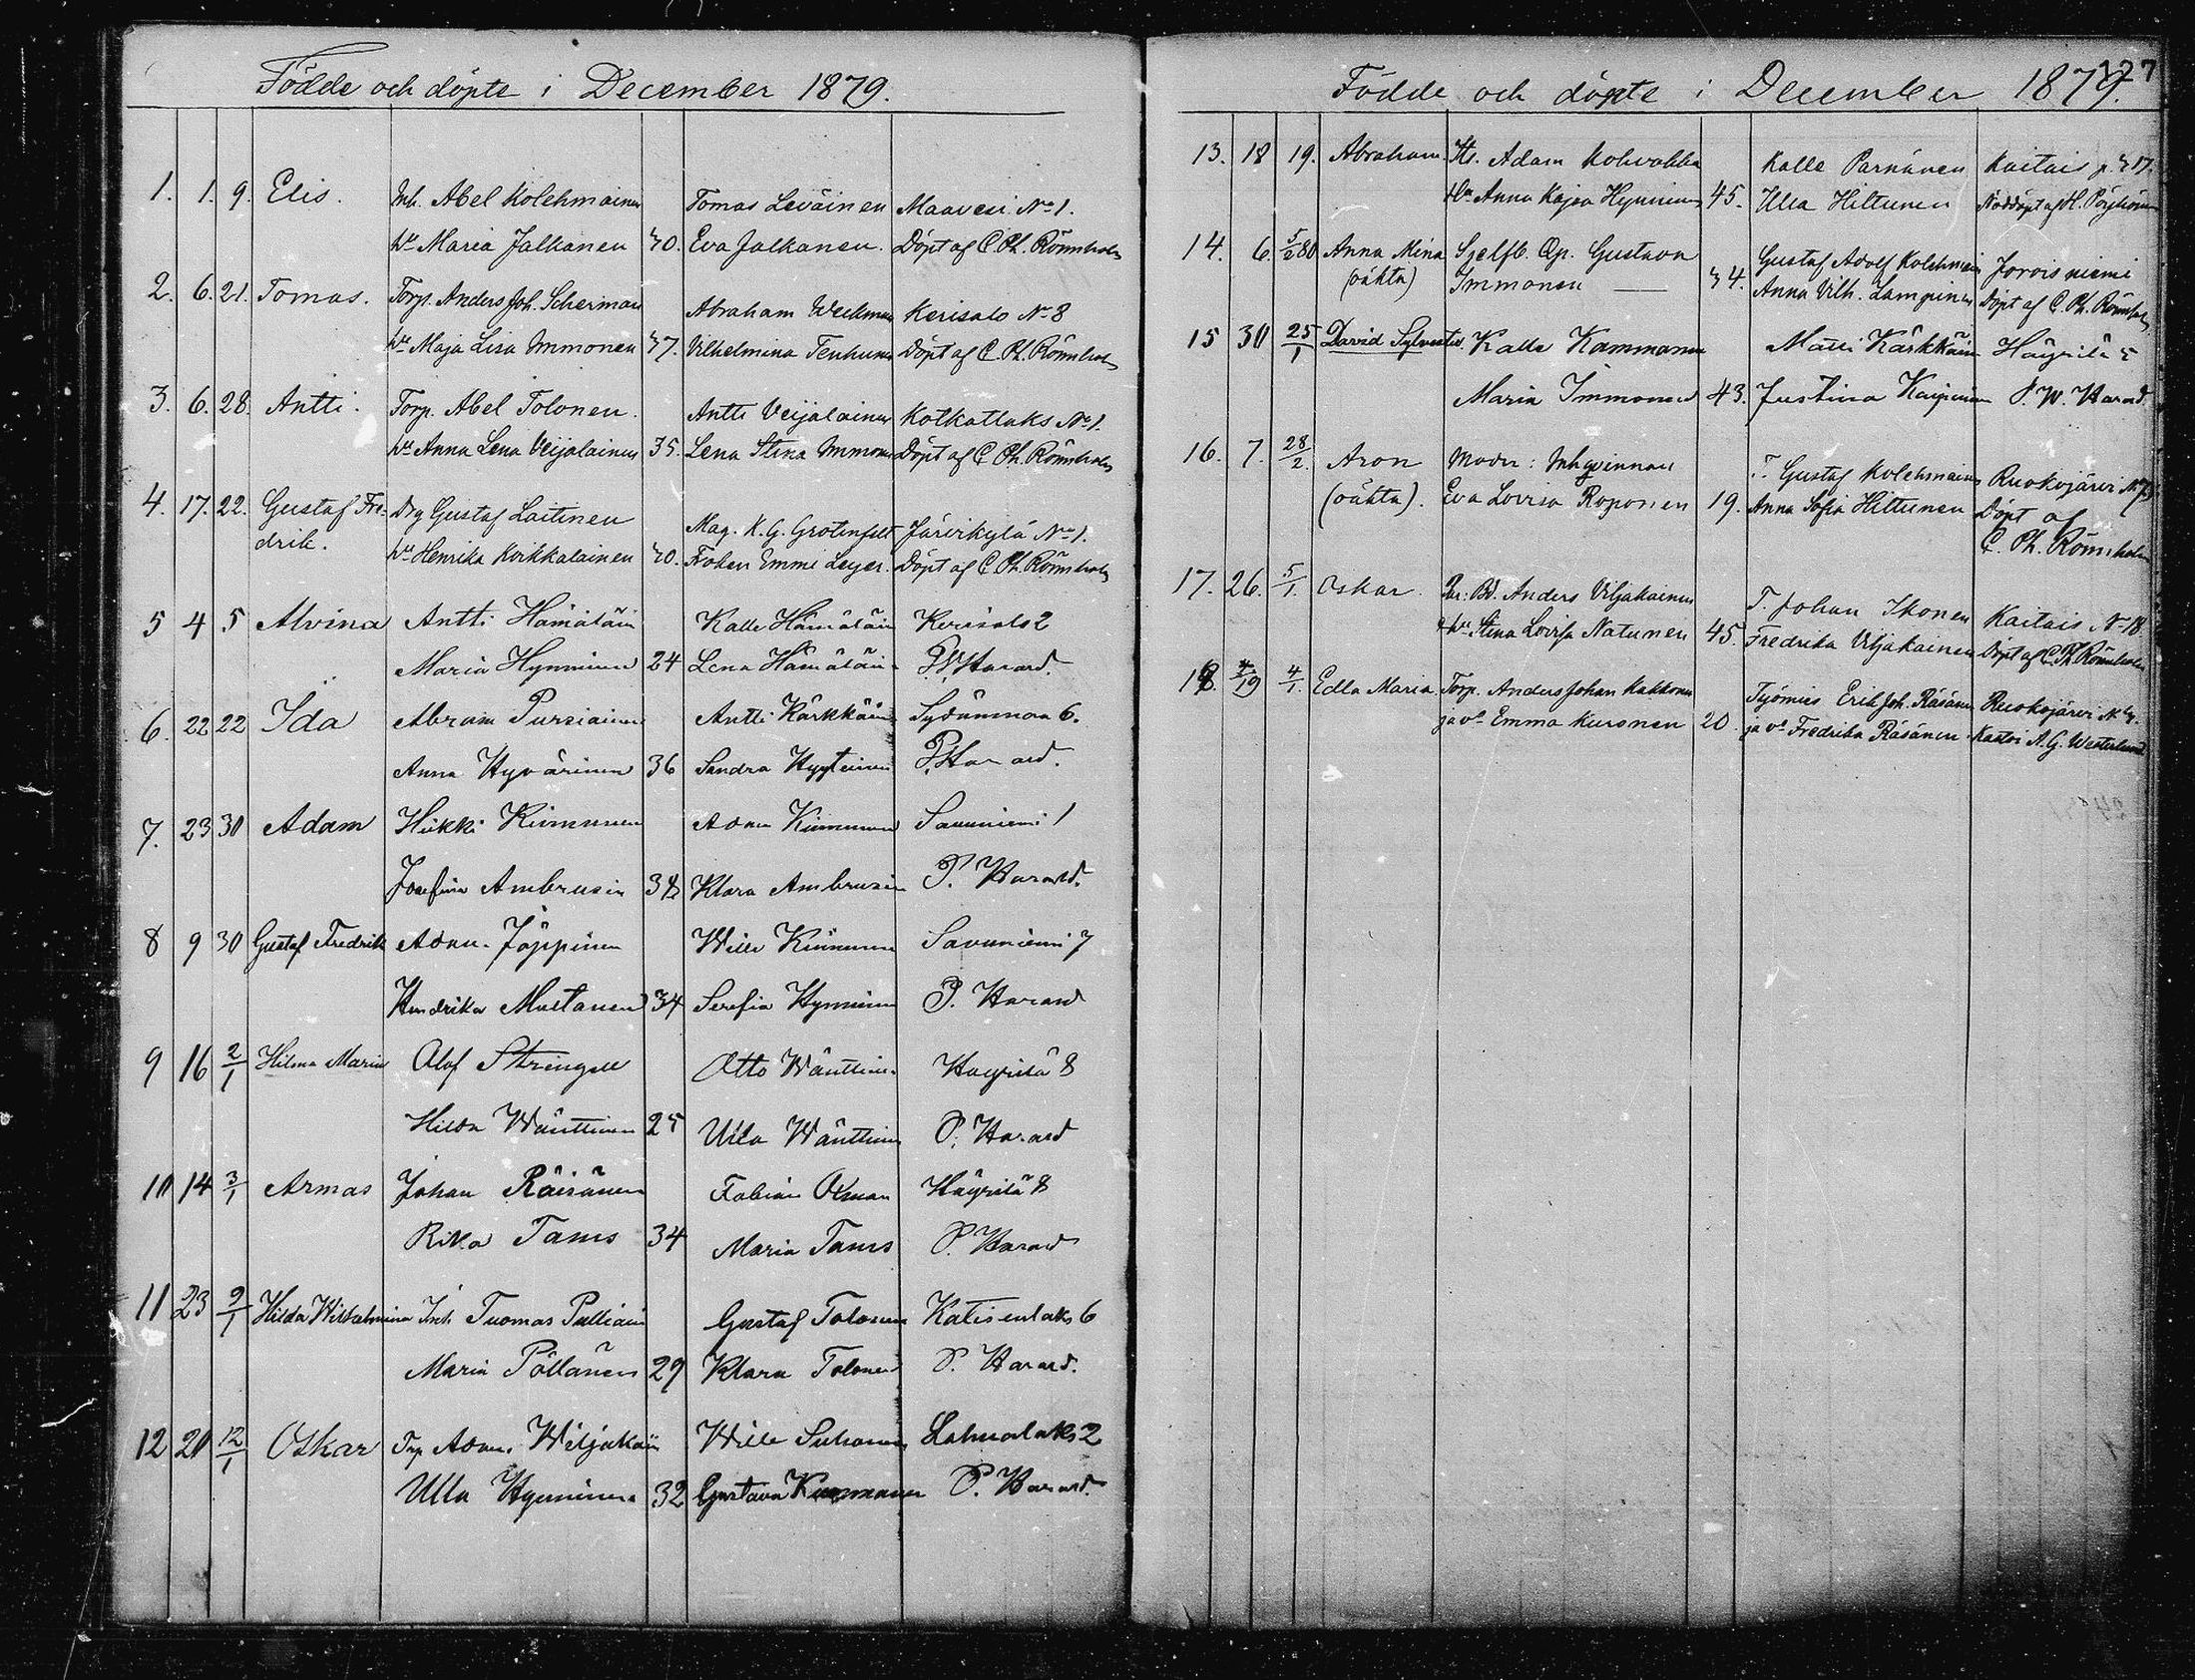 Födde och döpte i December 1879.
1. 1. 9. Elis. Inh. Abel Kolehmainen Tomas Leväinen Maavesi No 1.
hu Maria Jalkanen 40. Eva Jalkanen. Döpt af C. Ph. Rönnholm
2. 6. 21. Tomas. Torp. Anders Joh. Scherman Abraham Weckman Kerisalo No 8
hu Maja Lisa Immonen 47. Vilhelmina Tenhunen Döpt af C. Ph. Rönnholm
3. 6. 28. Antti. Torp. Abel Tolonen. Antti Veijalainen Kotkatlaks No 1.
hu Anna Lena Veijalainen 35. Lena Stina Immonen Döpt af C. Ph. Rönnholm
4. 17. 22. Gustaf Fre- Drg Gustaf Laitinen Mag. K. G. Grotenfelt Järvikylä No 1.
drik. hu Henrika Koikkalainen 40. Fröken Emmi Leyer. Döpt af C. Ph. Rönnholm
5 4 5 Alvina Antti Hämäläin Kalle Hämäläin Kerisalo 2
Maria Hynninen 24 Lena Hämäläin Harard.
6. 22 22 Ida Abram Pursiainen Antti Kärkkäin Sydänmaa 6.
Anna Hyvärinen 36 Sandra Hyytiäinen P. Harard.
7. 23 30 Adam Heikki Kinnunen Adam Kinnunen Savuniemi 1
Josefina Ambrusin 34 Klara Ambrusin P. Harard.
8 9 30 Gustaf Fredrik Adam Jäppinen Wille Kinnunen Savuniemi 7
Hendrika Mustanen 34 Serafia Hynninen P. Harard
9 16 2/1 Hilma Maria Olof Stringell Otto Wänttinen Häyrilä 8
Hilda Wänttinen 25 Ulla Wänttinen P. Harard
10 14 3/1 Armas Johan Räisänen Fabian Oman Häyrilä 8
Rika Tams 34 Maria Tams P. Harard
11 23 9/1 Hilda Wilhelmina Inh. Tuomas Pulliain Gustaf Tolonen Katisenlaks 6
Maria Pöllänen 29 Klara Tolonen P. Harard.
12 20 12/1 Oskar Trp Adam Wiljakain Wille Suhonen Lahnalaks 2
Ulla Hynninen 32 Gustava P. Harard.
127
Födde och döpte i December 1879.
13. 18 19. Abraham. Its. Adam Kohvakka Kalle Parnänen Kaitais No 17.
Hu Anna Kajsa Hynninen 45. Ulla Hiltunen Nöddöpt af H.
14. 6. 5/2 80 Anna Mina Sjelfb. Qp. Gustava Gustaf Adolf Kolehmain Joroisniemi
(oäkta) Immonen — 44. Anna Vilh. Lampinen Döpt af C. Ph. Rönnholm
15 30 25/1 David Sylvester. Kalle Kammonen Matti Kärkkäin Häyrilä 5
Maria Immonen 43. Justina Kaipainen P. W. Harard.
16. 7. 28/2. Aron Moder: Inhqvinnan T. Gustaf Kolehmainen Ruokojärvi No 7
(oäkta). Eva Lovisa Roponen 19. Anna Sofia Hiltunen Döpt af
C. Ph. Rönnholm
17. 26. 5/1. Oskar. Bd. Anders Viljakainen T. Johan Ikonen Kaitais No 18.
hu Stina Lovisa Natunen 45. Fredrika Viljakainen Döpt af C. Ph. Rönnholm
18. 19 4/1. Edla Maria. Torp. Anders Johan Kakkonen Työmies Erik Joh. Räsänen Ruokojärvi No 4.
ja vo Emma Kuronen 20 ja vo Fredrika Räsänen. Kastoi A. G. Westerlund